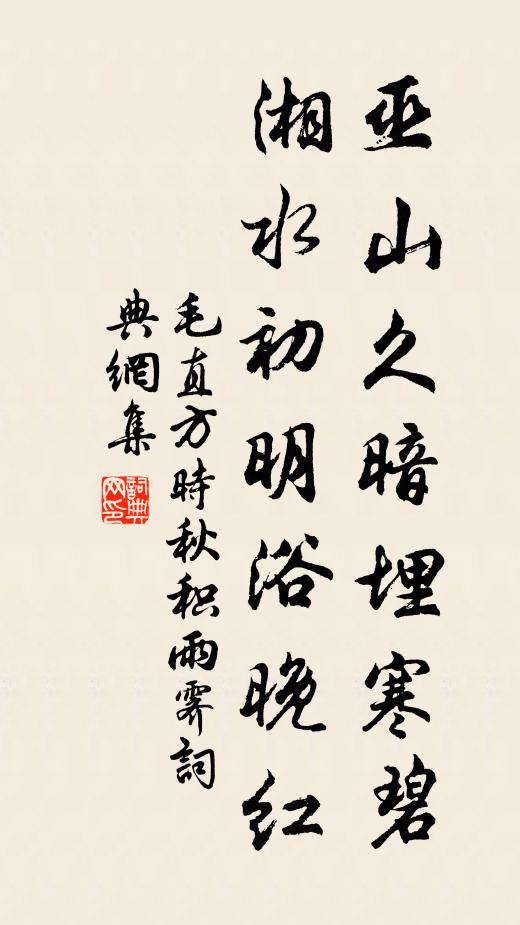 巫山久暗埋寒碧
湘水初明浴晚红
毛直方時秋积雨霁詞
典網集
詞典
网印